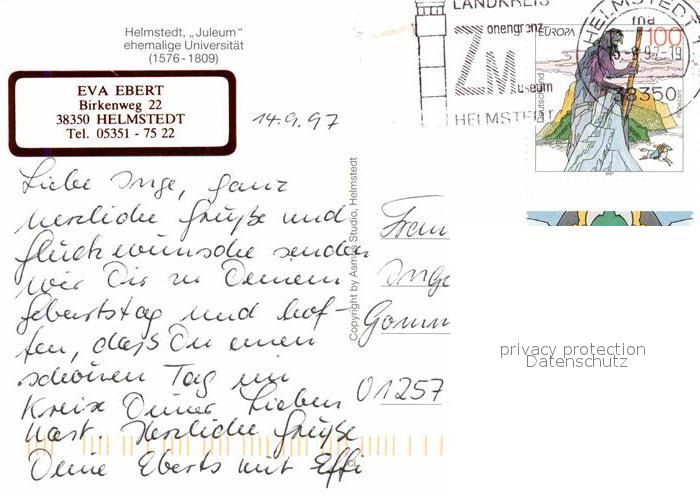 Helmstedt, „Juleum"
ehemalige Universität
(1576 - 1809)
EVA EBERT
Birkenweg 22
38350 HELMSTEDT
Tel. 05351 - 75 22
14.9.97
LANDKREIS
Zonengrenz
Museum
HELMSTEDT
HELMSTEDT
38350
EUROPA
100
Deutschland
1997
Liebe Inge, ganz
herzliche Grüße und
Glückwünsche senden
wir Dir zu Deinem
Geburtstag und hof-
fen, daß Du einen
schönen Tag im
Kreis Deiner Lieben
hast. Herzliche Grüße
Deine Eberts mit Effi
Copyright by Asmus Studio, Helmstedt
Frau
Inge
01257
privacy protection
Datenschutz